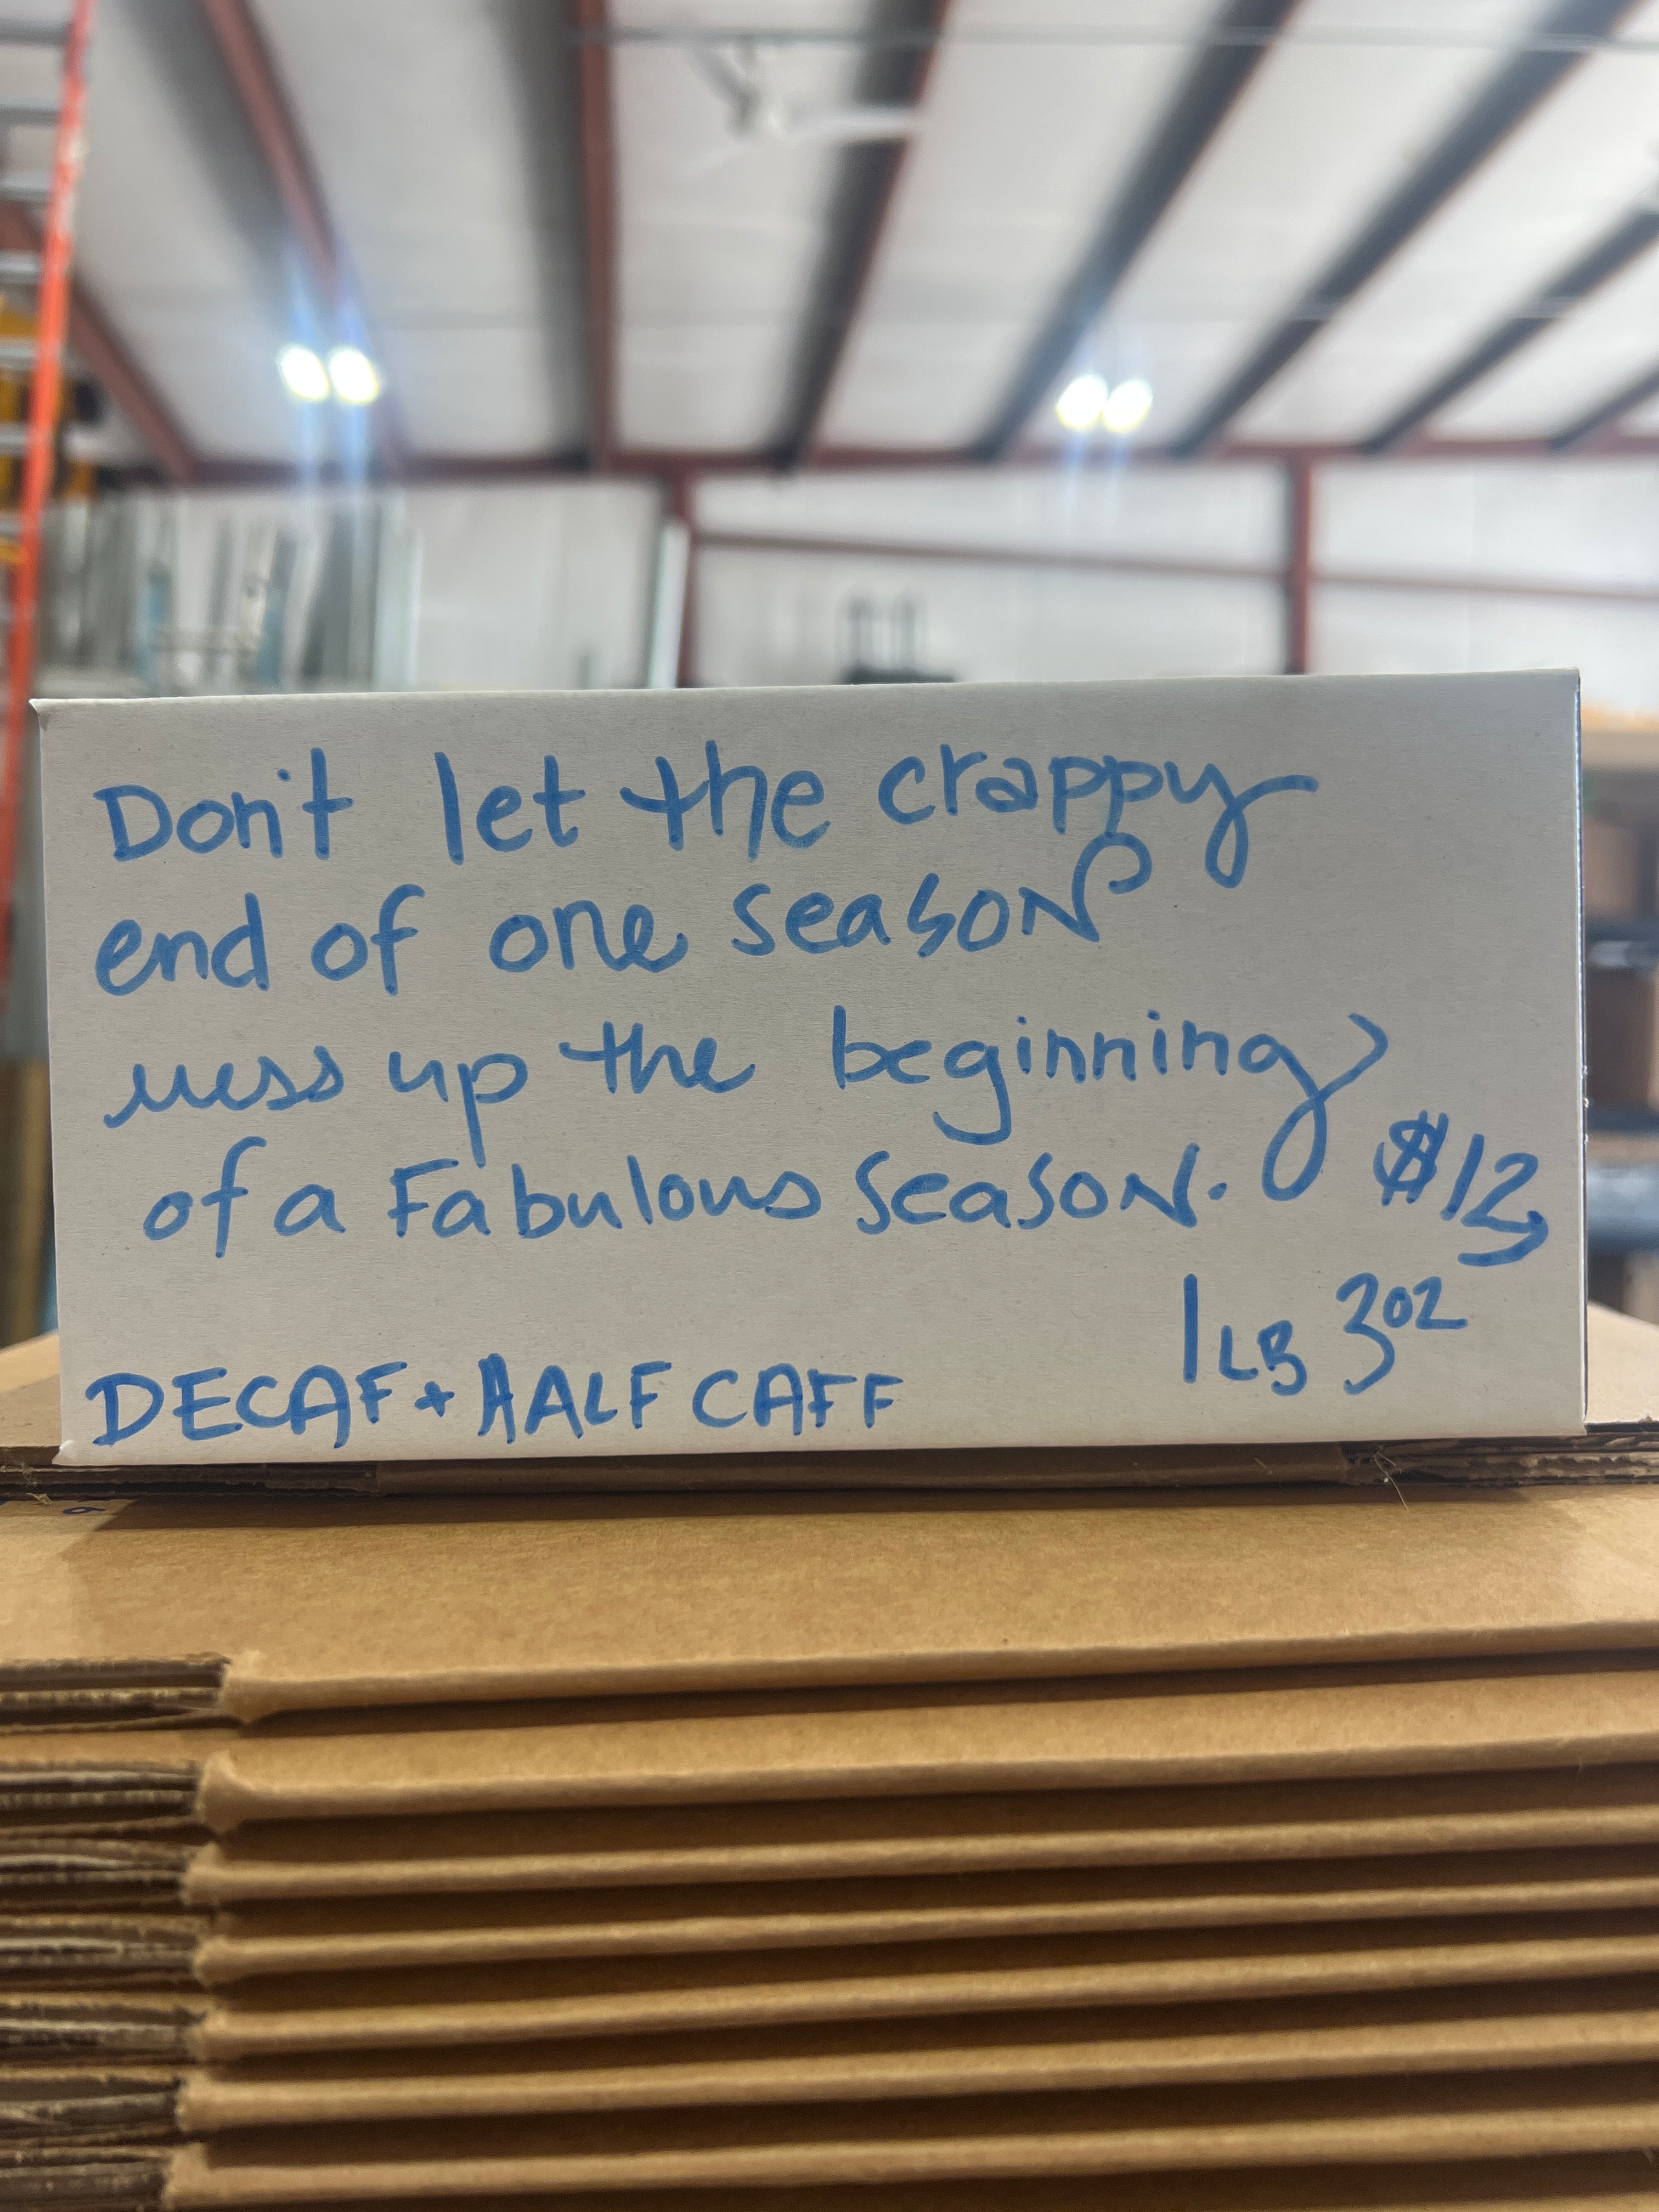 Don't let the crappy
end of one season
mess up the beginning
of a Fabulous season.
$12
1 LB 3 oz
DECAF + HALF CAFF